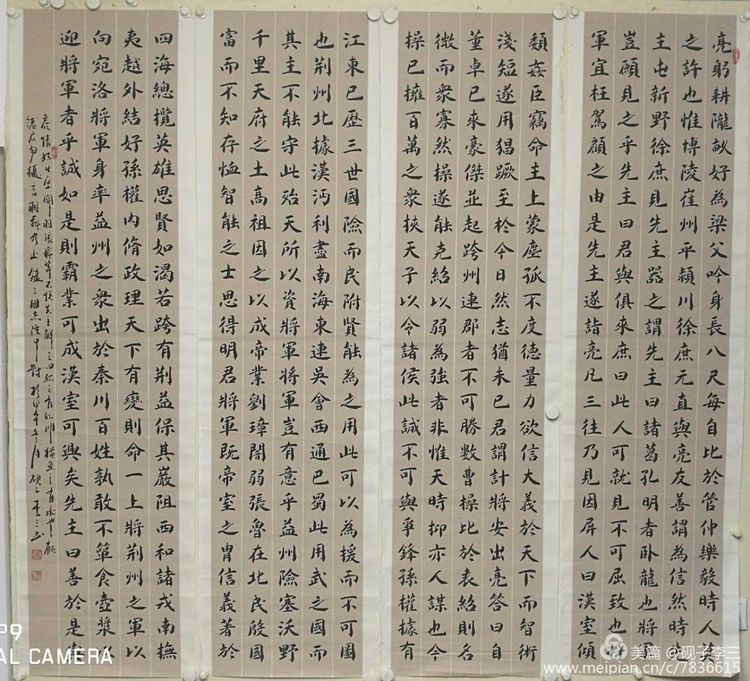 亮躬耕隴畝好為梁父吟身長八尺每自比於管仲樂毅時人莫
之許也惟博陵崔州平潁川徐庶元直與亮友善謂為信然時先
主屯新野徐庶見先主器之謂先主曰諸葛孔明者臥龍也將軍
豈願見之乎先主曰君與俱來庶曰此人可就見不可屈致也將
軍宜枉駕顧之由是先主遂詣亮凡三往乃見因屏人曰漢室傾
頹姦臣竊命主上蒙塵孤不度德量力欲信大義於天下而智術
淺短遂用猖蹶至於今日然志猶未已君謂計將安出亮答曰自
董卓已來豪傑並起跨州連郡者不可勝數曹操比於袁紹則名
微而眾寡然操遂能克紹以弱為強者非惟天時抑亦人謀也今
操已擁百萬之眾挾天子以令諸侯此誠不可與爭鋒孫權據有
江東已歷三世國險而民附賢能為之用此可以為援而不可圖
也荊州北據漢沔利盡南海東連吳會西通巴蜀此用武之國而
其主不能守此殆天所以資將軍將軍豈有意乎益州險塞沃野
千里天府之土高祖因之以成帝業劉璋闇弱張魯在北民殷國
富而不知存恤智能之士思得明君將軍既帝室之冑信義著於
四海總攬英雄思賢如渴若跨有荊益保其巖阻西和諸戎南撫
夷越外結好孫權內脩政理天下有變則命一上將荊州之軍以
向宛洛將軍身率益州之眾出於秦川百姓孰敢不簞食壺漿以
迎將軍者乎誠如是則霸業可成漢室可興矣先主曰善於是與
亮情好日密關羽張飛等不悅先主解之曰孤之有孔明猶魚之有水也願
諸君勿復言羽飛乃止 錄三國志隆中對 於甲午年 月 硯子李三書
P9
AL CAMERA
美篇 @砚子李三
www.meipian.cn/c/7836615